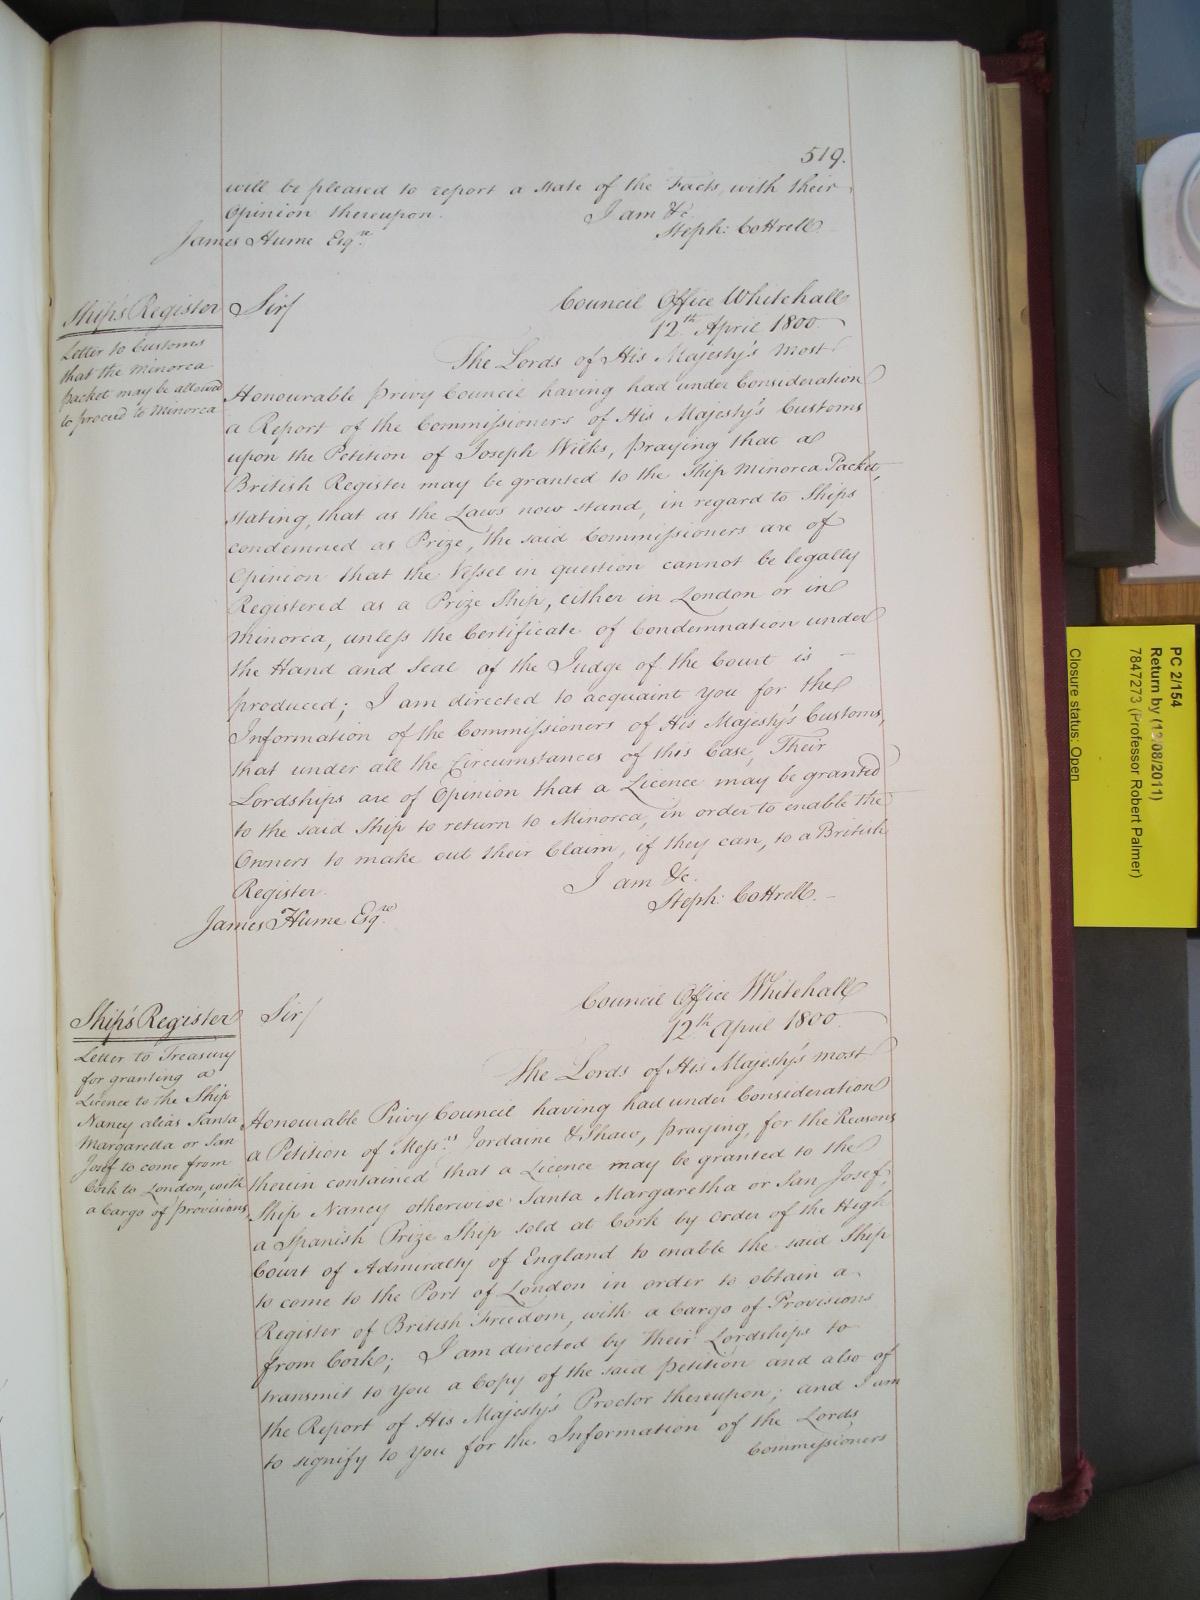 519.
will be pleased to report a State of the Facts, with their
Opinion thereupon.
I am &c.
Steph: Cottrell.
James Hume Esqre.
Ship's Register
Letter to Customs
that the Minorca
Packet may be allowed
to proceed to Minorca
Sir/
Council Office Whitehall
12th April 1800.
The Lords of His Majesty's most
Honourable Privy Council having had under Consideration
a Report of the Commissioners of His Majesty's Customs
upon the Petition of Joseph Wilks, praying that a
British Register may be granted to the Ship Minorca Packet,
stating, that as the Laws now stand, in regard to Ships
condemned as Prize, the said Commissioners are of
Opinion that the Vessel in question cannot be legally
Registered as a Prize Ship, either in London or in
Minorca, unless the Certificate of Condemnation under
the Hand and Seal of the Judge of the Court is —
produced; I am directed to acquaint you for the
Information of the Commissioners of His Majesty's Customs,
that under all the Circumstances of this Case, Their
Lordships are of Opinion that a Licence may be granted
to the said Ship to return to Minorca, in order to enable the
Owners to make out their Claim, if they can, to a British
Register.
I am &c.
Steph: Cottrell. —
James Hume Esqre.
Ship's Register
Letter to Treasury
for granting a
Licence to the Ship
Nancy alias Santa
Margaretta or San
Josef to come from
Cork to London, with
a Cargo of Provisions
Sir/
Council Office Whitehall
12th April 1800.
The Lords of His Majesty's most
Honourable Privy Council having had under Consideration
a Petition of Messrs. Jordaine & Shaw, praying, for the Reasons
therein contained that a Licence may be granted to the
Ship Nancy otherwise Santa Margaretha or San Josef,
a Spanish Prize Ship sold at Cork by order of the High
Court of Admiralty of England to enable the said Ship
to come to the Port of London in order to obtain a
Register of British Freedom, with a Cargo of Provisions
from Cork; I am directed by their Lordships to
transmit to you a Copy of the said Petition and also of
the Report of His Majesty's Proctor thereupon; and I am
to signify to you for the Information of the Lords
Commissioners
PC 2/154
Return by (13/08/2011)
7847273 (Professor Robert Palmer)
Closure status: Open